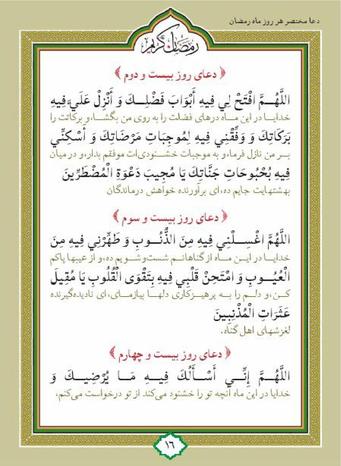 دعا مختصر هر روز ماه رمضان
رمضان کریم
﴿ دعای روز بیست و دوم ﴾
اللَّهُمَّ افْتَحْ لِي فِيهِ أَبْوَابَ فَضْلِكَ وَ أَنْزِلْ عَلَيَّ فِيهِ
خدایا در این ماه درهای فضلت را به روی من بگشا، و برکاتت را
بَرَكَاتِكَ وَ وَفِّقْنِي فِيهِ لِمُوجِبَاتِ مَرْضَاتِكَ وَ أَسْكِنِّي
بر من نازل فرما، و به موجبات خشنودی‌ات موفقم بدار، و در میان
فِيهِ بُحْبُوحَاتِ جَنَّاتِكَ يَا مُجِيبَ دَعْوَةِ الْمُضْطَرِّينَ
بهشتهایت جایم ده، ای برآورنده خواهش درماندگان
﴿ دعای روز بیست و سوم ﴾
اللَّهُمَّ اغْسِلْنِي فِيهِ مِنَ الذُّنُوبِ وَ طَهِّرْنِي فِيهِ مِنَ
خدایا در این ماه از گناهانم شست‌وشویم ده، و از عیبها پاکم
الْعُيُوبِ وَ امْتَحِنْ قَلْبِي فِيهِ بِتَقْوَى الْقُلُوبِ يَا مُقِيلَ
کن، و دلم را به پرهیزکاری دلها بیازمای، ای نادیده‌گیرنده
عَثَرَاتِ الْمُذْنِبِينَ
لغزشهای اهل گناه.
﴿ دعای روز بیست و چهارم ﴾
اللَّهُمَّ إِنِّي أَسْأَلُكَ فِيهِ مَا يُرْضِيكَ وَ
خدایا در این ماه آنچه تو را خشنود می‌کند از تو درخواست می‌کنم،
۱۶